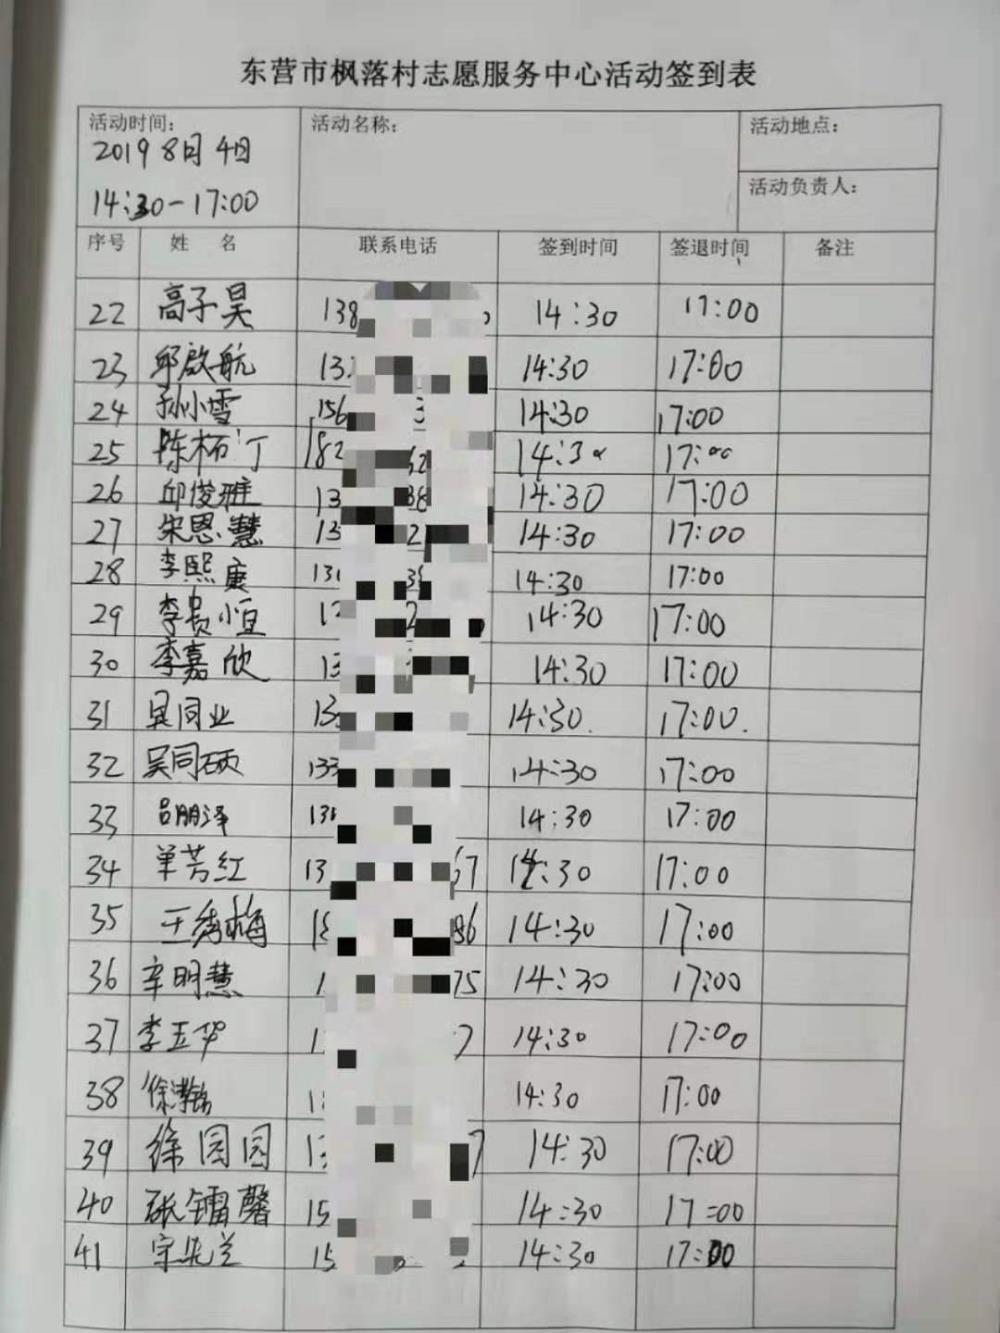 东营市枫落村志愿服务中心活动签到表
活动时间： 活动名称： 活动地点：
2019 8月 4日
14:30-17:00 活动负责人：
序号 姓 名 联系电话 签到时间 签退时间 备注
22 高子昊 138 14:30 17:00
23 邱啟航 13 14:30 17:00
24 孙小雪 156 3 14:30 17:00
25 陈 182 62 14:30 17:00
26 邱俊雅 13 38 14:30 17:00
27 宋恩慧 13 2 14:30 17:00
28 李熙康 13 14:30 17:00
29 李 1 2 14:30 17:00
30 李嘉欣 13 14:30 17:00
31 吴同业 13 14:30. 17:00.
32 吴同硕 133 14:30 17:00
33 吕朋泽 13 14:30 17:00
34 单芳红 13 67 14:30 17:00
35 王秀梅 1 86 14:30 17:00
36 辛明慧 1 75 14:30 17:00
37 李玉华 1 7 14:30 17:00
38 徐 1 14:30 17:00
39 徐园园 13 7 14:30 17:00
40 张镭馨 15 14:30 17:00
41 宋 兰 15 14:30 17:00